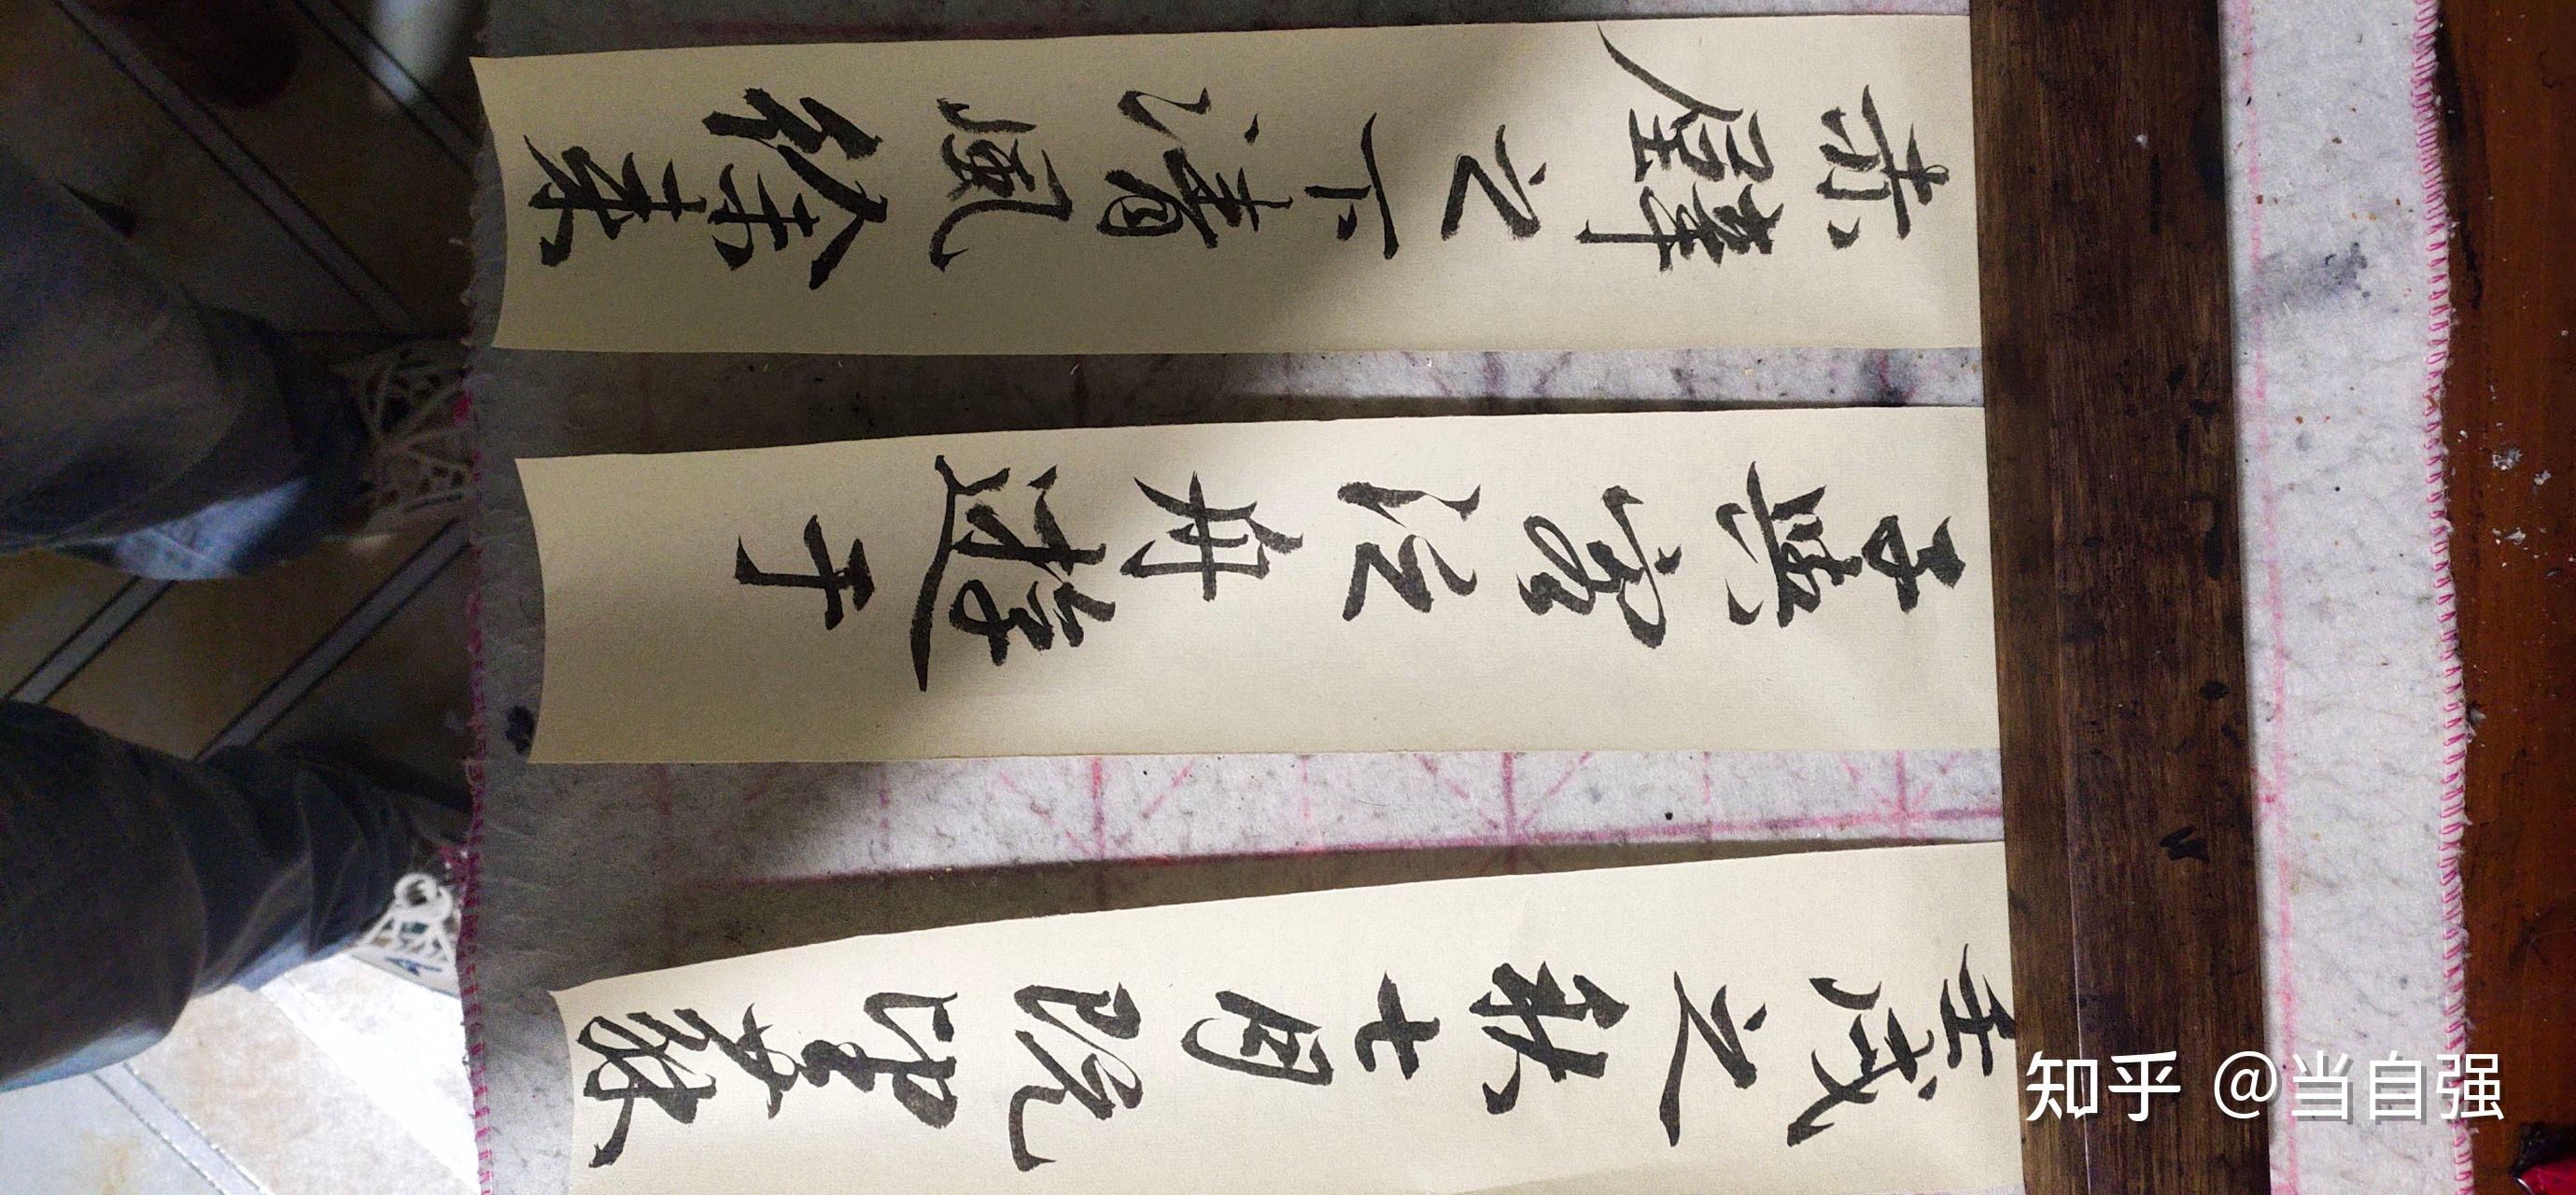 壬戌之秋七月既望蘇
子與客泛舟遊于
赤壁之下清風徐来
知乎 @当自强